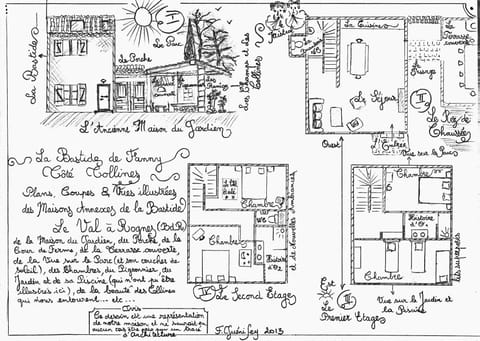 I
Le Parc
La Bastide
Le Porche
L'Ancienne Maison du Jardien
La Cuisine
La Terrasse
couverte
Le Porche
II
Le Séjour
L'Entrée
Le Rez de
Chaussée
Ouest
Vue sur le Parc
La Bastide de Fanny
Côté Collines
Plans, Coupes & Vues illustrées
des Maisons Annexes de la Bastide
Le Val à Rognes (BdR)
de la Maison du Jardien, du Porche, de la
Cour de Ferme, de la Terrasse couverte,
de la Vue sur le Parc (et son coucher de
soleil), des Chambres, du Pigeonnier, du
Jardin et de sa Piscine (qui n'ont pu être
illustrés ici), de la beauté des Collines
qui nous entourent... etc...
Avis
Ce dessin est une représentation
de notre maison et ne saurait en
aucun cas être pris pour un tracé
d'Architecture
Chambre
Chambre
Histoire
d'O
IV Le Second Etage
F. Guéni Sey 2013
Chambre
Histoire
d'O
Chambre
Est
III
Le
Premier Etage
Vue sur le Jardin et
la Piscine